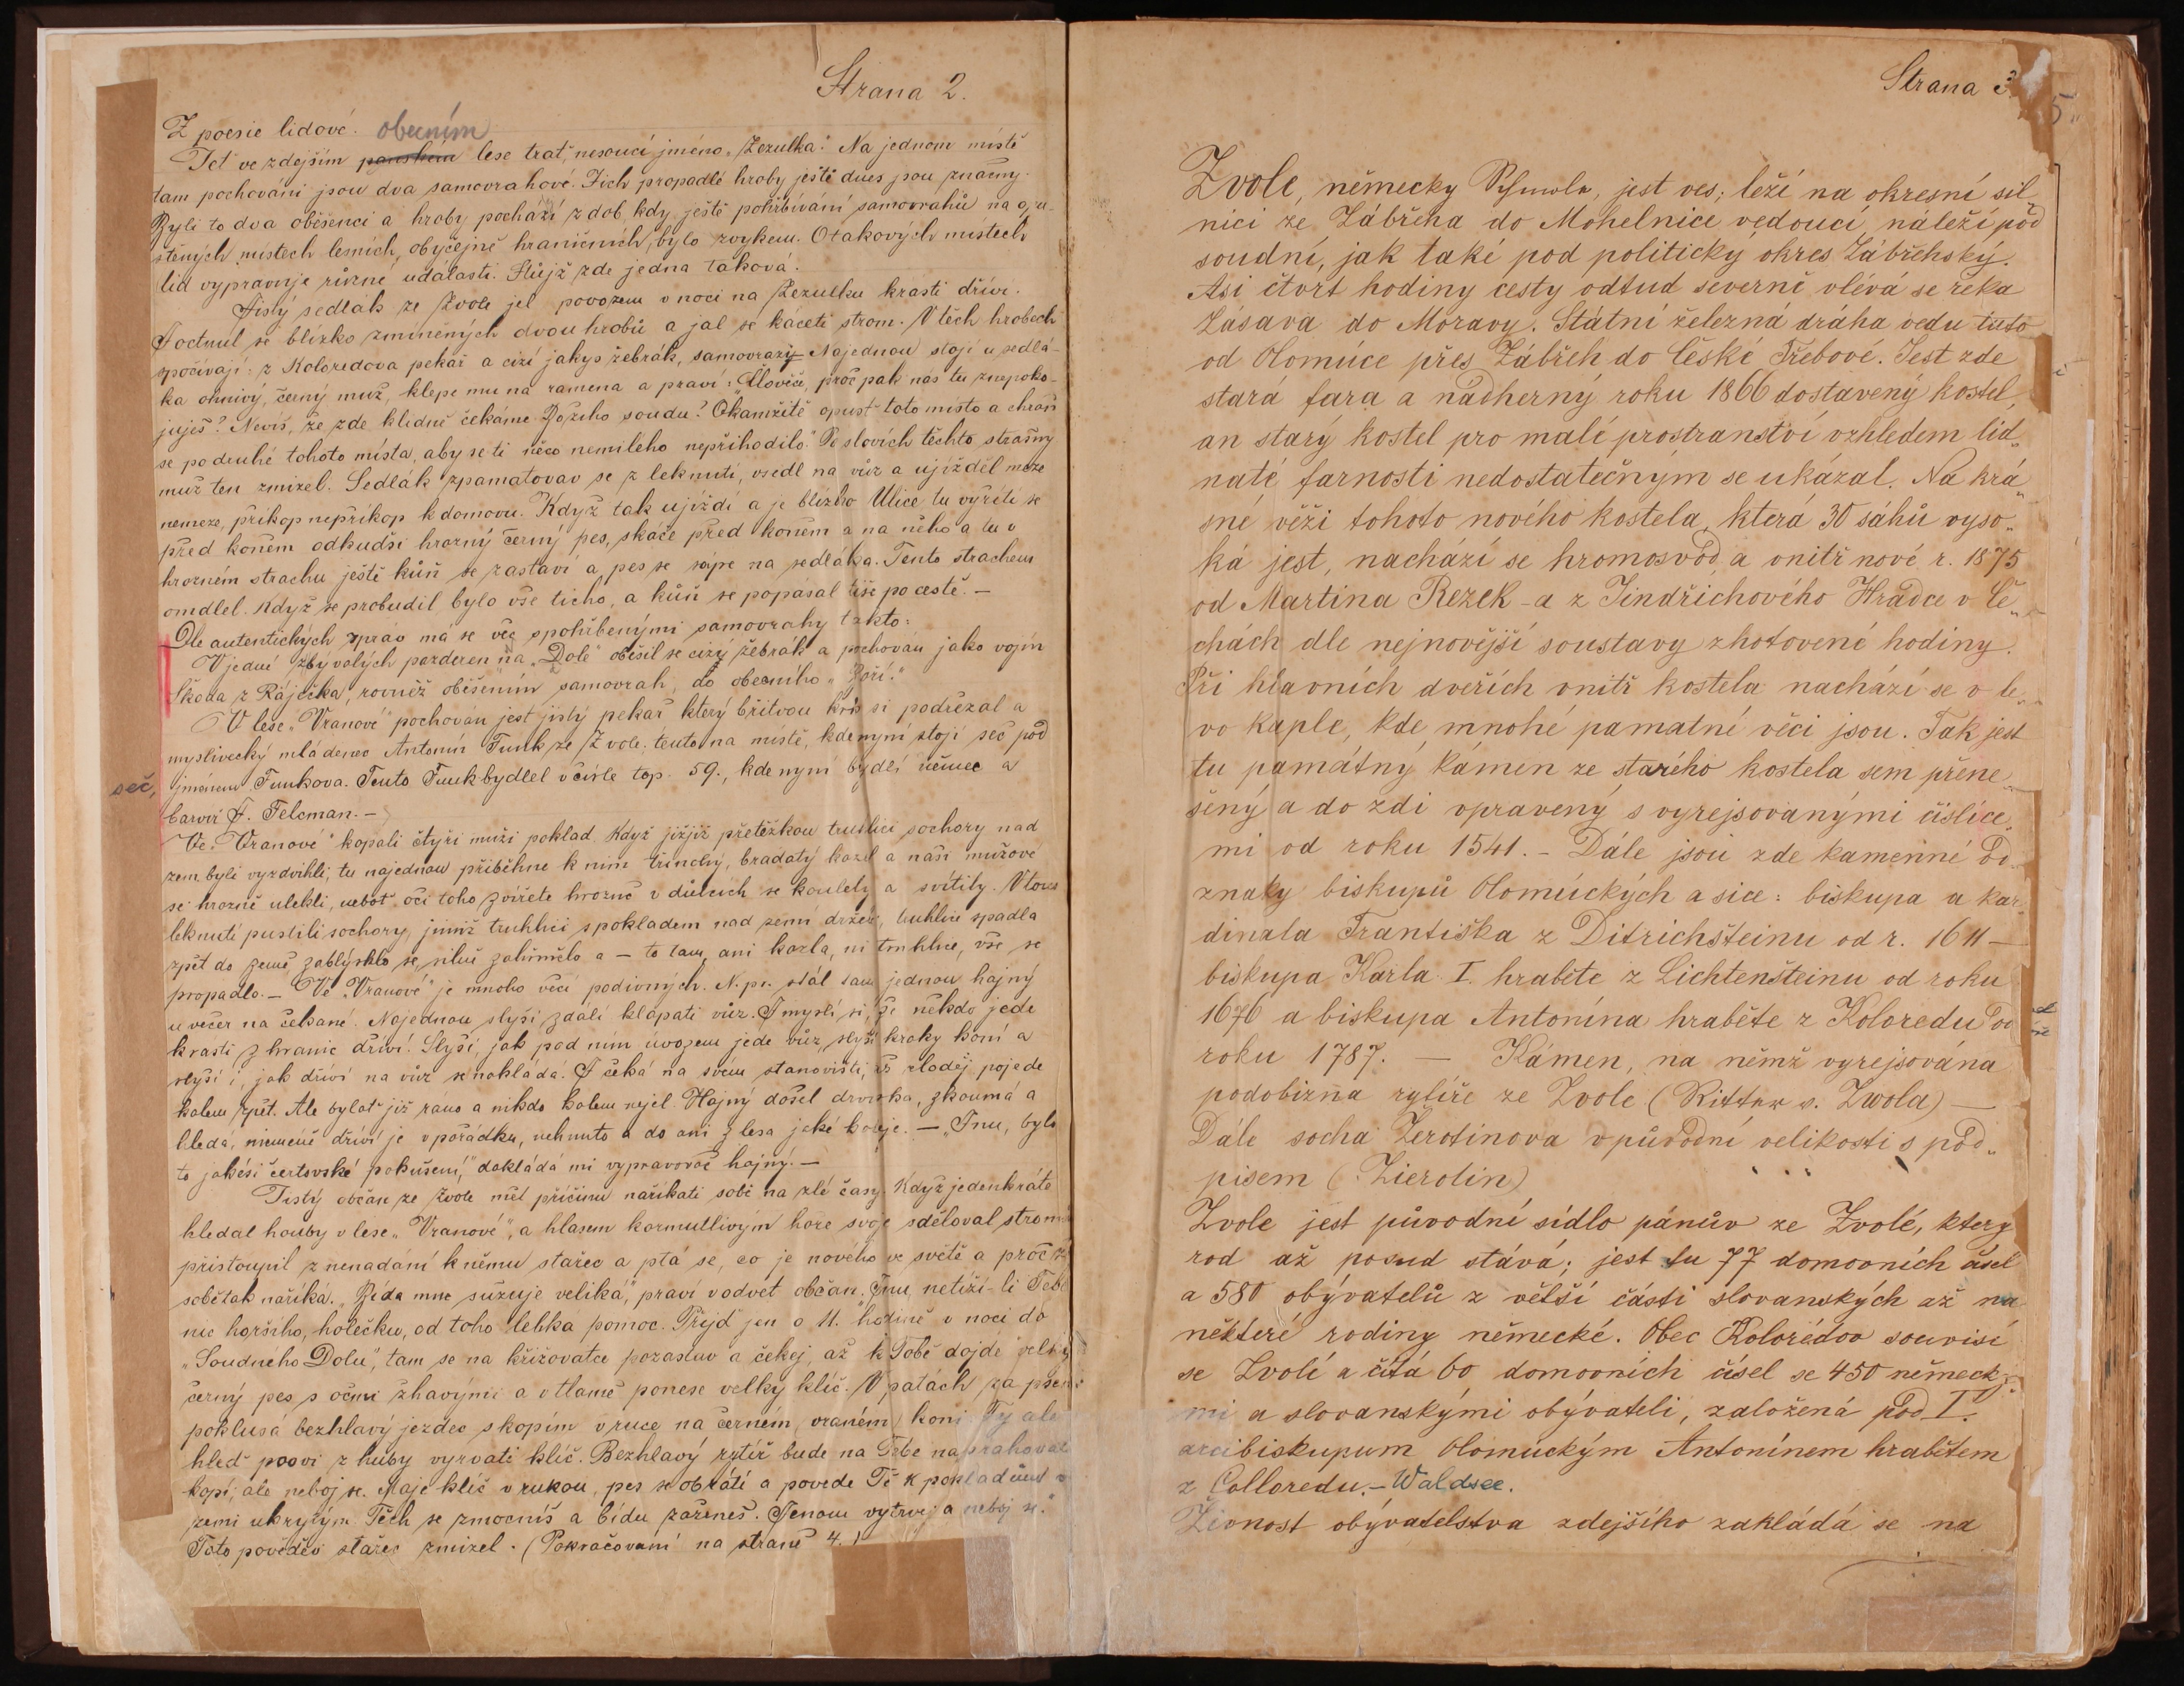 Strana 2.
Z poesie lidové. obecním
Jeť ve zdejším panském lese trať, nesoucí jméno „Zezulka." Na jednom místě
tam pochováni jsou dva samovrahové. Jich propadlé hroby ještě dnes jsou znatny.
Byli to dva oběšenci a hroby pochází z dob, kdy ještě pohřbívání samovrahů na opu-
štěných místech lesních, obyčejně hraničních, bylo zvykem. O takových místech
lid vypravuje různé události. Stůjž zde jedna taková.
Jistý sedlák ze Zvole jel povozem v noci na Zezulku krásti dříví.
I octnul se blízko zmíněných dvou hrobů a jal se káceti strom. V těch hrobech
spočívají: z Koloredova pekař a cizí jakýs žebrák, samovrazi. Najednou stojí u sedlá-
ka ohnivý, černý muž, klepe mu na ramena a praví: „Človíče, proč pak nás tu znepoko-
juješ? Nevíš, že zde klidně čekáme Božího soudu? Okamžitě opusť toto místo a chraň
se podruhé tohoto místa, aby se ti něco nemilého nepřihodilo." Po slovích těchto strašný
muž ten zmizel. Sedlák zpamatovav se z leknutí, vsedl na vůz a ujížděl meze
nemeze, příkop nepříkop k domovu. Když tak ujíždí a je blízko Ulice tu vyřítí se
před koněm odkudsi hrozný černý pes, skáče před koněm a na něho a tu v
hrozném strachu ještě kůň se zastaví a pes se sápe na sedláka. Tento strachem
omdlel. Když se probudil bylo vše ticho, a kůň se popásal tiše po cestě. —
Dle autentických zpráv má se věc s pohřbenými samovrahy takto:
V jedné z bývalých pazderen na „Dole" oběsil se cizý žebrák a pochován jako vojín
Škoda z Ráječka, rovněž oběšením samovrah, do obecního „Boří."
V lese „Vranové" pochován jest jistý pekař který břitvou krk si podřezal a
myslivecký mládenec Antonín Funk ze Zvole, tento na místě, kde nyní stojí seč pod
seč,
jménem Funkova. Tento Funk bydlel v čísle top. 59., kde nyní bydlí němec a
barvíř F. Felcman. —
Ve „Vranové" kopali čtyři muži poklad. Když jižjiž přetěžkou truhlici sochory nad
zem byli vyzdvihli, tu najednou přiběhne k nim bradatý kozel a naši mužové
se hrozně ulekli, neboť oči toho zvířete hrozně v důlcích se koulely a svítily. V tom
leknutí pustili sochory, jimiž truhlici s pokladem nad zemí drželi, truhlice spadla
zpět do země, zablýsklo se, silně zahřmělo a — to tam, ani kozla, ni truhlice, vše se
propadlo. — Ve „Vranové" je mnoho věcí podivných. N. př. stál tam jednou hajný
u večer na čekané. Najednou slyší zdáli klápati vůz. I myslí si, že někdo jede
krásti z hranic dříví. Slyší, jak pod ním úvozem jede vůz, slyší kroky koní a
slyší i, jak dříví na vůz se nakládá. I čeká na svém stanovišti, až zloděj pojede
kolem zpět. Ale bylať již ráno a nikdo kolem nejel. Hajný došel drviska, zkoumá a
hledá, nicméně dříví je v pořádku, nehnuto a do ani z lesa jaké koleje. — „Inu, bylo
to jakési čertovské pokušení," dokládá mi vypravovač hajný. —
Jistý občan ze Zvole měl příčinu naříkati sobě na zlé časy. Když jedenkráte
hledal houby v lese „Vranové", a hlasem kormutlivým hoře svoje sděloval stromů
přistoupil z nenadání k němu stařec a ptá se, co je nového ve světě a proč si
sobě tak naříká. „Bída mne sužuje veliká," praví v odvet občan. „Inu, netíží-li Tebe
nic horšího, holečku, od toho lehka pomoc. Přijď jen o 11. hodině v noci do
„Soudného Dolu", tam se na křižovatce pozastav a čekej, až k Tobě dojde velký
černý pes s očima žhavýma a v tlamě ponese velký klíč. V patách za psem
poklusá bezhlavý jezdec s kopím v ruce na černém (vraném) koni. Ty ale
hleď psovi z huby vyrvati klíč. Bezhlavý rytíř bude na Tebe naprahovat
kopí, ale neboj se. Maje klíč v rukou, pes se obrátí a povede Tě k pokladům v
zemi ukrytým. Těch se zmocníš a bídu zaženeš. Jenom vytrvej a neboj se."
Toto pověděv stařec zmizel. (Pokračování na straně 4.)
Strana 3.
5.
Zvole, německy Schmole, jest ves; leží na okresní sil-
nici ze Zábřeha do Mohelnice vedoucí, náleží pod
soudní, jak také pod politický okres Zábřehský.
Asi čtvrt hodiny cesty odtud severně vlévá se řeka
Zásava do Moravy. Státní železná dráha vedu tuto
od Olomúce přes Zábřeh do České Třebové. Jest zde
stará fara a nádherný roku 1866 dostavený kostel,
an starý kostel pro malé prostranství vzhledem lid-
naté farnosti nedostatečným se ukázal. Na krá-
sné věži tohoto nového kostela, která 30 sáhů vyso-
ká jest, nachází se hromosvod, a vnitř nové r. 1875
od Martina Rezek-a z Jindřichového Hradce v Če-
chách dle nejnovější soustavy zhotovené hodiny.
Při hlavních dveřích vnitř kostela nachází se v le-
vo kaple, kde mnohé pamatní věci jsou. Tak jest
tu památný kámen ze starého kostela sem přene-
šený a do zdi vpravený s vyrejsovanými číslice-
mi od roku 1541. — Dále jsou zde kamenné od-
znaky biskupů Olomúckých a sice: biskupa a kar-
dinala Františka z Ditrichšteinu od r. 1611 —
biskupa Karla I. hraběte z Lichtenšteinu od roku
1676 a biskupa Antonína hraběte z Koloredu od
roku 1787. — Kámen, na němž vyrejsována
podobizna rytíře ze Zvole (Ritter v. Zwola) —
Dále socha Žerotínova v původní velikosti s pod-
pisem (Zierotin)
Zvole jest původní sídlo pánův ze Zvolé, který
rod až posud stává; jest tu 77 domovních čísel
a 580 obývatelů z větší části slovanských až na
některé rodiny německé. Obec Kolorédov souvisí
se Zvolí a čítá 60 domovních čísel se 450 německý-
mi a slovanskými obývateli, založená pod I.
arcibiskupum Olomúckým Antonínem hrabětem
z Colloredu. — Waldsee.
Živnost obývatelstva zdejšího zakládá se na